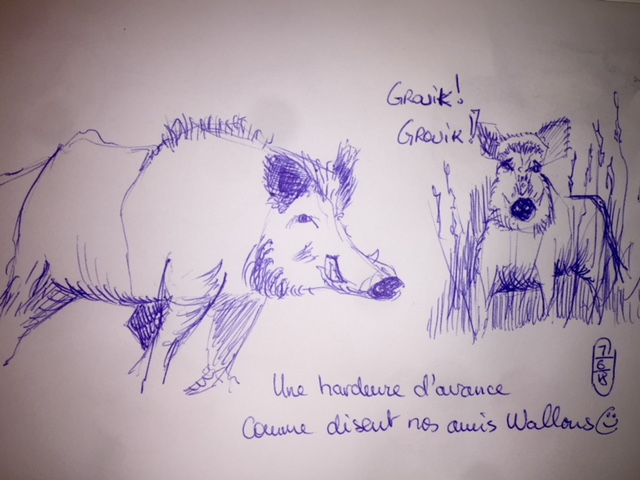 Grouik!
Grouik!
Une hardeure d'avance
Comme disent nos amis Wallons
7
6
18